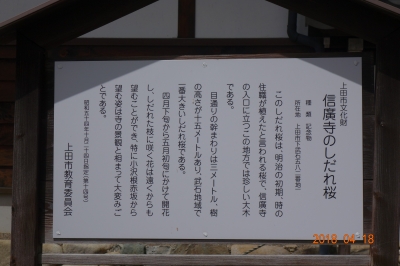 上田市文化財
信廣寺のしだれ桜
種類 記念物
所在地 上田市下武石五八二番地
このしだれ桜は、明治の初期、時の
住職が植えたと言われる桜で、信廣寺
の入口に立つこの地方では珍しい大木
である。
目通りの幹まわりは三メートル、樹
の高さが十五メートルあり、武石地域で
一番大きいしだれ桜である。
四月下旬から五月初旬にかけて開花
し、しだれた枝に咲く花は遠くからも
望むことができ、特に小沢根赤坂から
望む姿は寺の景観と相まって大変みご
とである。
昭和五十四年十月二十四日指定(第十四号)
上田市教育委員会
2018 04 18